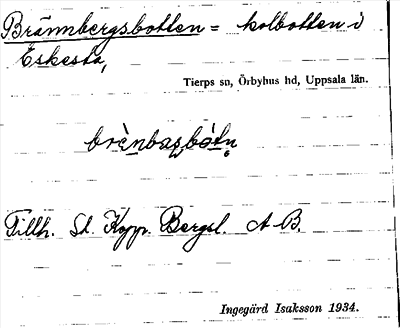 Brännbergsbotten = kolbotten i
Eskesta,
Tierps sn, Örbyhus hd, Uppsala län.
Tillh. St. Kopp. Bergsl. A B.
Ingegärd Isaksson 1934.